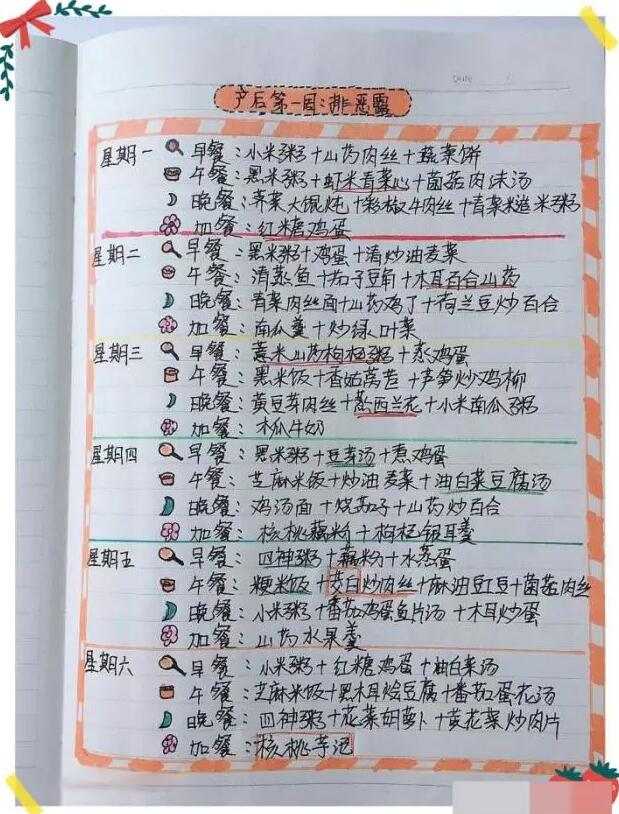 Date
产后第一周:排恶露
星期一 早餐:小米粥+山药肉丝+蔬菜饼
午餐:黑米粥+虾米青菜心+菌菇肉沫汤
晚餐:荠菜大馄炖+彩椒牛肉丝+青菜糙米粥
加餐:红糖鸡蛋
星期二 早餐:黑米粥+鸡蛋+清炒油麦菜
午餐:清蒸鱼+茄子豆角+木耳百合山药
晚餐:青菜肉丝面+山药鸡丁+荷兰豆炒百合
加餐:南瓜羹+炒绿叶菜
星期三 早餐:薏米山药枸杞粥+蒸鸡蛋
午餐:黑米饭+香菇莴苣+芦笋炒鸡柳
晚餐:黄豆芽肉丝+西兰花+小米南瓜粥
加餐:木瓜牛奶
星期四 早餐:黑米粥+豆浆汤+煮鸡蛋
午餐:芝麻米饭+炒油麦菜+油白菜豆腐汤
晚餐:鸡汤面+烧茄子+山药炒百合
加餐:核桃藕粉+枸杞银耳羹
星期五 早餐:四神粥+藕粉+水蒸蛋
午餐:粳米饭+茭白炒肉丝+麻油豇豆+菌菇肉丝
晚餐:小米粥+番茄鸡蛋鱼片汤+木耳炒蛋
加餐:山药水果羹
星期六 早餐:小米粥+红糖鸡蛋+油白菜汤
午餐:芝麻米饭+黑木耳烩豆腐+番茄蛋花汤
晚餐:四神粥+花菜胡萝卜+黄花菜炒肉片
加餐:核桃芋泥